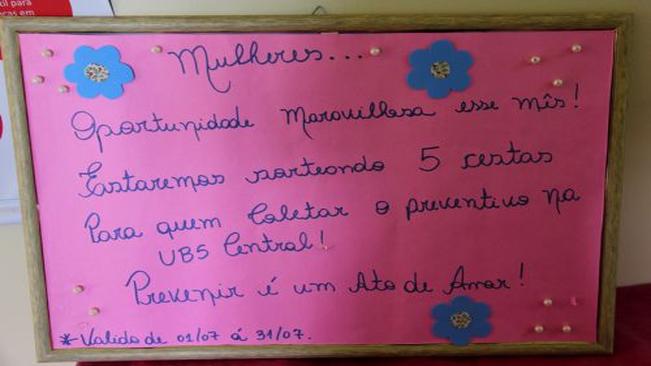 xil para
ças em
Mulheres...
Oportunidade Maravilhosa esse mês!
Estaremos sorteando 5 cestas
Para quem Coletar o preventivo na
UBS Central!
Prevenir é um Ato de Amor!
*-Valido de 01/07 á 31/07.